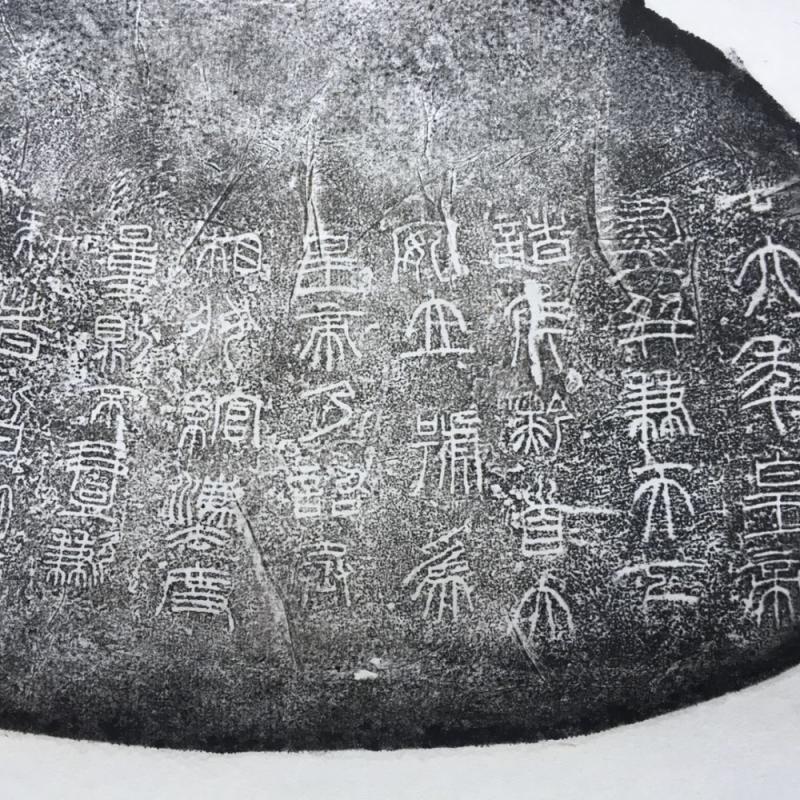 廿六年皇帝
盡并兼天下
諸侯黔首大
安立號為
皇帝乃詔丞
相狀綰灋度
量則不壹歉
疑者皆明